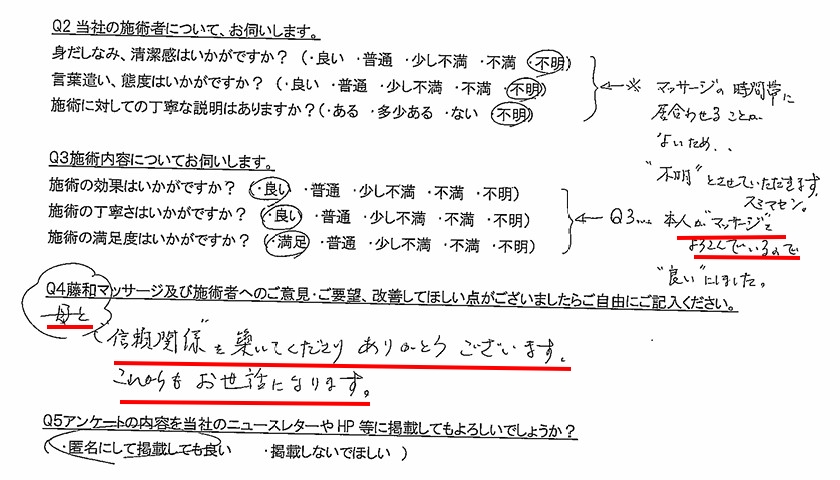 Q2 当社の施術者について、お伺いします。
身だしなみ、清潔感はいかがですか？ (・良い ・普通 ・少し不満 ・不満 ・不明)
言葉遣い、態度はいかがですか？ (・良い ・普通 ・少し不満 ・不満 ・不明)
施術に対しての丁寧な説明はありますか？(・ある ・多少ある ・ない ・不明)
※ マッサージの時間帯に
居合わせることが
ないため、、
"不明"とさせていただきます
スミマセン。
Q3施術内容についてお伺いします。
施術の効果はいかがですか？ (・良い ・普通 ・少し不満 ・不満 ・不明)
施術の丁寧さはいかがですか？ (・良い ・普通 ・少し不満 ・不満 ・不明)
施術の満足度はいかがですか？ (・満足 ・普通 ・少し不満 ・不満 ・不明)
Q3は 本人が"マッサージ"を
よろこんでいるので
"良い"にしました。
Q4藤和マッサージ及び施術者へのご意見・ご要望、改善してほしい点がございましたらご自由にご記入ください。
母と
"信頼関係"を築いてくださり ありがとうございます。
これからもお世話になります。
Q5アンケートの内容を当社のニュースレターやHP等に掲載してもよろしいでしょうか？
(・匿名にして掲載しても良い ・掲載しないでほしい )